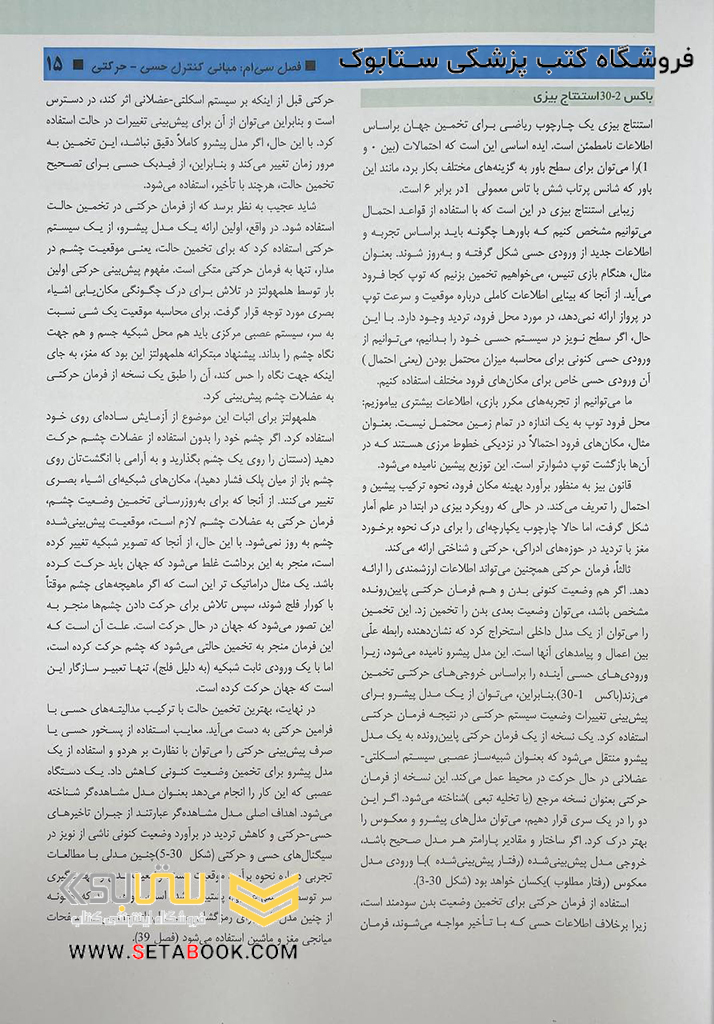 فروشگاه کتب پزشکی ستابوک
فصل سی‌ام: مبانی کنترل حسی - حرکتی ■ ۱۵
باکس 2-30استنتاج بیزی
استنتاج بیزی یک چارچوب ریاضی برای تخمین جهان براساس
اطلاعات نامطمئن است. ایده اساسی این است که احتمالات (بین ۰ و
1)را می‌توان برای سطح باور به گزینه‌های مختلف بکار برد، مانند این
باور که شانس پرتاب شش با تاس معمولی 1در برابر ۶ است.
زیبایی استنتاج بیزی در این است که با استفاده از قواعد احتمال
می‌توانیم مشخص کنیم که باورها چگونه باید براساس تجربه و
اطلاعات جدید از ورودی حسی شکل گرفته و به‌روز شوند. بعنوان
مثال، هنگام بازی تنیس، می‌خواهیم تخمین بزنیم که توپ کجا فرود
می‌آید. از آنجا که بینایی اطلاعات کاملی درباره موقعیت و سرعت توپ
در پرواز ارائه نمی‌دهد، در مورد محل فرود، تردید وجود دارد. با این
حال، اگر سطح نویز در سیستم حسی خود را بدانیم، می‌توانیم از
ورودی حسی کنونی برای محاسبه میزان محتمل بودن (یعنی احتمال )
آن ورودی حسی خاص برای مکان‌های فرود مختلف استفاده کنیم.
ما می‌توانیم از تجربه‌های مکرر بازی، اطلاعات بیشتری بیاموزیم:
محل فرود توپ به یک اندازه در تمام زمین محتمل نیست. بعنوان
مثال، مکان‌های فرود احتمالاً در نزدیکی خطوط مرزی هستند که در
آن‌ها بازگشت توپ دشوارتر است. این توزیع پیشین نامیده می‌شود.
قانون بیز به منظور برآورد بهینه مکان فرود، نحوه ترکیب پیشین و
احتمال را تعریف می‌کند. در حالی که رویکرد بیزی در ابتدا در علم آمار
شکل گرفت، اما حالا چارچوب یکپارچه‌ای را برای درک نحوه برخورد
مغز با تردید در حوزه‌های ادراکی، حرکتی و شناختی ارائه می‌کند.
ثالثاً، فرمان حرکتی همچنین می‌تواند اطلاعات ارزشمندی را ارائه
دهد. اگر هم وضعیت کنونی بدن و هم فرمان حرکتی پایین‌رونده
مشخص باشد، می‌توان وضعیت بعدی بدن را تخمین زد. این تخمین
را می‌توان از یک مدل داخلی استخراج کرد که نشان‌دهنده رابطه علّی
بین اعمال و پیامدهای آنها است. این مدل پیشرو نامیده می‌شود، زیرا
ورودی‌های حسی آینده را براساس خروجی‌های حرکتی تخمین
می‌زند(باکس 1-30).بنابراین، می‌توان از یک مدل پیشرو برای
پیش‌بینی تغییرات وضعیت سیستم حرکتی در نتیجه فرمان حرکتی
استفاده کرد. یک نسخه از یک فرمان حرکتی پایین‌رونده به یک مدل
پیشرو منتقل می‌شود که بعنوان شبیه‌ساز عصبی سیستم اسکلتی-
عضلانی در حال حرکت در محیط عمل می‌کند. این نسخه از فرمان
حرکتی بعنوان نسخه مرجع (یا تخلیه تبعی )شناخته می‌شود. اگر این
دو را در یک سری قرار دهیم، می‌توان مدل‌های پیشرو و معکوس را
بهتر درک کرد. اگر ساختار و مقادیر پارامتر هر مدل صحیح باشد،
خروجی مدل پیش‌بینی‌شده (رفتار پیش‌بینی‌شده )با ورودی مدل
معکوس (رفتار مطلوب )یکسان خواهد بود (شکل 30-3).
استفاده از فرمان حرکتی برای تخمین وضعیت بدن سودمند است،
زیرا برخلاف اطلاعات حسی که با تأخیر مواجه می‌شوند، فرمان
حرکتی قبل از اینکه بر سیستم اسکلتی-عضلانی اثر کند، در دسترس
است و بنابراین می‌توان از آن برای پیش‌بینی تغییرات در حالت استفاده
کرد. با این حال، اگر مدل پیشرو کاملاً دقیق نباشد، این تخمین به
مرور زمان تغییر می‌کند و بنابراین، از فیدبک حسی برای تصحیح
تخمین حالت، هرچند با تأخیر، استفاده می‌شود.
شاید عجیب به نظر برسد که از فرمان حرکتی در تخمین حالت
استفاده شود. در واقع، اولین ارائه یک مدل پیشرو، از یک سیستم
حرکتی استفاده کرد که برای تخمین حالت، یعنی موقعیت چشم در
مدار، تنها به فرمان حرکتی متکی است. مفهوم پیش‌بینی حرکتی اولین
بار توسط هلمهولتز در تلاش برای درک چگونگی مکان‌یابی اشیاء
بصری مورد توجه قرار گرفت. برای محاسبه موقعیت یک شی نسبت
به سر، سیستم عصبی مرکزی باید هم محل شبکیه جسم و هم جهت
نگاه چشم را بداند. پیشنهاد مبتکرانه هلمهولتز این بود که مغز، به جای
اینکه جهت نگاه را حس کند، آن را طبق یک نسخه از فرمان حرکتی
به عضلات چشم پیش‌بینی کرد.
هلمهولتز برای اثبات این موضوع از آزمایش ساده‌ای روی خود
استفاده کرد. اگر چشم خود را بدون استفاده از عضلات چشم حرکت
دهید (دستتان را روی یک چشم بگذارید و به آرامی با انگشت‌تان روی
چشم باز از میان پلک فشار دهید)، مکان‌های شبکیه‌ای اشیاء بصری
تغییر می‌کنند. از آنجا که برای به‌روزرسانی تخمین وضعیت چشم،
فرمان حرکتی به عضلات چشم لازم است، موقعیت پیش‌بینی‌شده
چشم به روز نمی‌شود. با این حال، از آنجا که تصویر شبکیه تغییر کرده
است، منجر به این برداشت غلط می‌شود که جهان باید حرکت کرده
باشد. یک مثال دراماتیک تر این است که اگر ماهیچه‌های چشم موقتاً
با کورار فلج شوند، سپس تلاش برای حرکت دادن چشم‌ها منجر به
این تصور می‌شود که جهان در حال حرکت است. علت آن است که
این فرمان منجر به تخمین حالتی می‌شود که چشم حرکت کرده است،
اما با یک ورودی ثابت شبکیه (به دلیل فلج)، تنها تعبیر سازگار این
است که جهان حرکت کرده است.
در نهایت، بهترین تخمین حالت با ترکیب مدالیته‌های حسی با
فرامین حرکتی به دست می‌آید. معایب استفاده از پسخور حسی یا
صرف پیش‌بینی حرکتی را می‌توان با نظارت بر هردو و استفاده از یک
مدل پیشرو برای تخمین وضعیت کنونی کاهش داد. یک دستگاه
عصبی که این کار را انجام می‌دهد بعنوان مدل مشاهده‌گر شناخته
می‌شود. اهداف اصلی مدل مشاهده‌گر عبارتند از جبران تاخیرهای
حسی-حرکتی و کاهش تردید در برآورد وضعیت کنونی ناشی از نویز در
سیگنال‌های حسی و حرکتی (شکل 30-5)چنین مدلی با مطالعات
تجربی درباره نحوه برآورد موقعیت دست، وضعیت بدن و جهت‌گیری
سر توسط
از چنین مدل
میانجی مغز و ماشین استفاده می‌شود (فصل 39).
ستابوک
فروشگاه اینترنتی کتاب
WWW.SETABOOK.COM